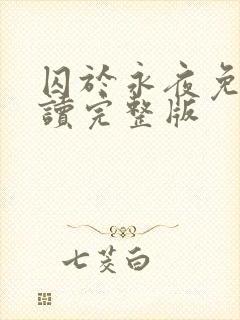 囚於永夜免
讀完整版
七茭白